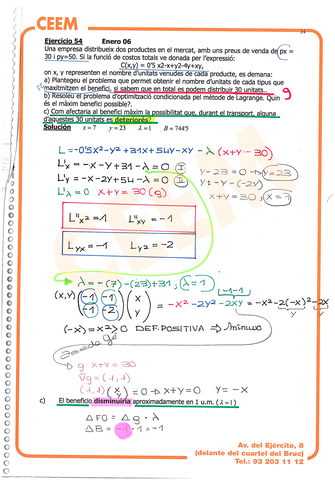 CEEM
34
Ejercicio 54 Enero 06
Una empresa distribueix dos productes en el mercat, amb uns preus de venda de px =
30 i py=50. Si la funció de costos totals ve donada per l'expressió:
C(x,y) = 0'5 x2-x+y2-4y+xy,
on x, y representen el nombre d'unitats venudes de cada producte, es demana:
a) Plantegeu el problema que permet obtenir el nombre d'unitats de cada tipus que
maximitzen el benefici, si sabem que en total es podem distribuir 30 unitats. g
b) Resoleu el problema d'optimització condicionada pel mètode de Lagrange. Quin
és el màxim benefici possible?.
c) Com afectaria al benefici màxim la possibilitat que, durant el transport, alguna
d'aquestes 30 unitats es deteriorés?
Solución x = 7 y = 23 λ = 1 B = 7445
L = -0'5x²-y²+31x+54y-xy - λ (x+y-30)
L'x = -x-y+31-λ = 0 I
y-23 = 0 → y=23
L'y = -x-2y+54-λ = 0 II
L'λ = 0 x+y = 30 (g)
x+y = 30, x=7
L''x² = 1 L''xy = -1
Lyx = -1 Ly² = -2
λ = -(7)-(23)+31; λ=1
(x,y) (-1 -1 -1 -2) (x y) = -x²-2y²-2xy = -x²-2(-x)²-2x
(-x) = x² > 0 DEF. POSITIVA ⇒ Mínimo
g: x+y = 30
∇g = (1,1)
(1,1) (x y) = 0 → x+y = 0 y = -x
c) El beneficio disminuiría aproximadamente en 1 u.m. (λ = 1)
ΔFO = Δg · λ
ΔB = -1 · 1 = -1
Av. del Ejército, 8
(delante del cuartel del Bruc)
Tel.: 93 203 11 12